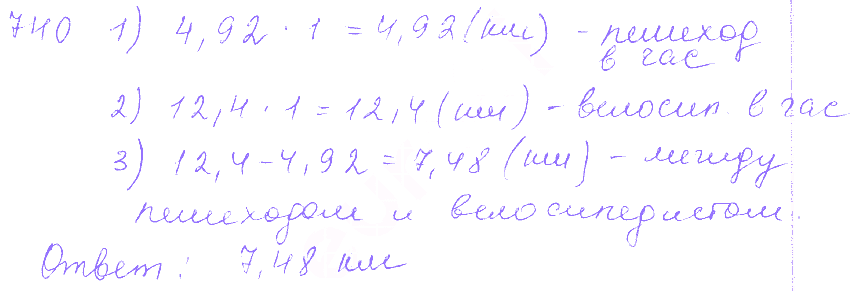 740 1) 4,92 · 1 = 4,92 (км) - пешеход
в час
2) 12,4 · 1 = 12,4 (км) - велосип. в час
3) 12,4 - 4,92 = 7,48 (км) - между
пешеходом и велосипедистом.
Ответ: 7,48 км